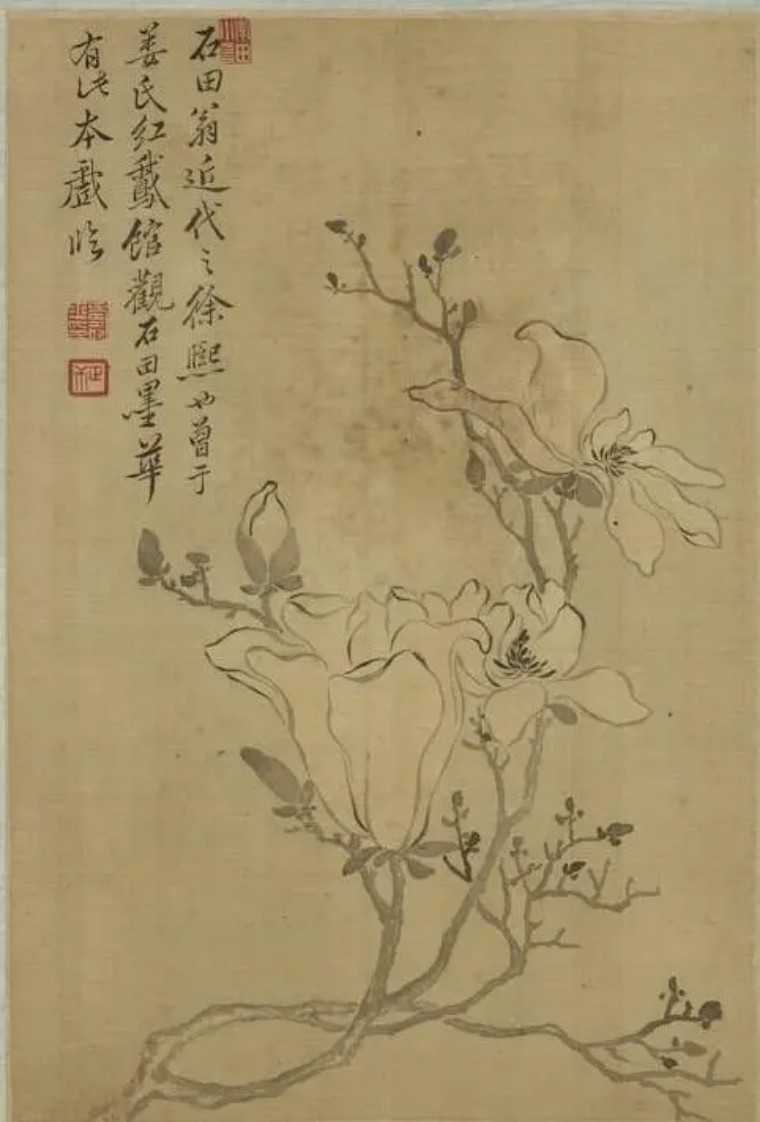 石田翁近代之徐熙也曾于
姜氏红鵞馆觀石田墨華
有此本戲临